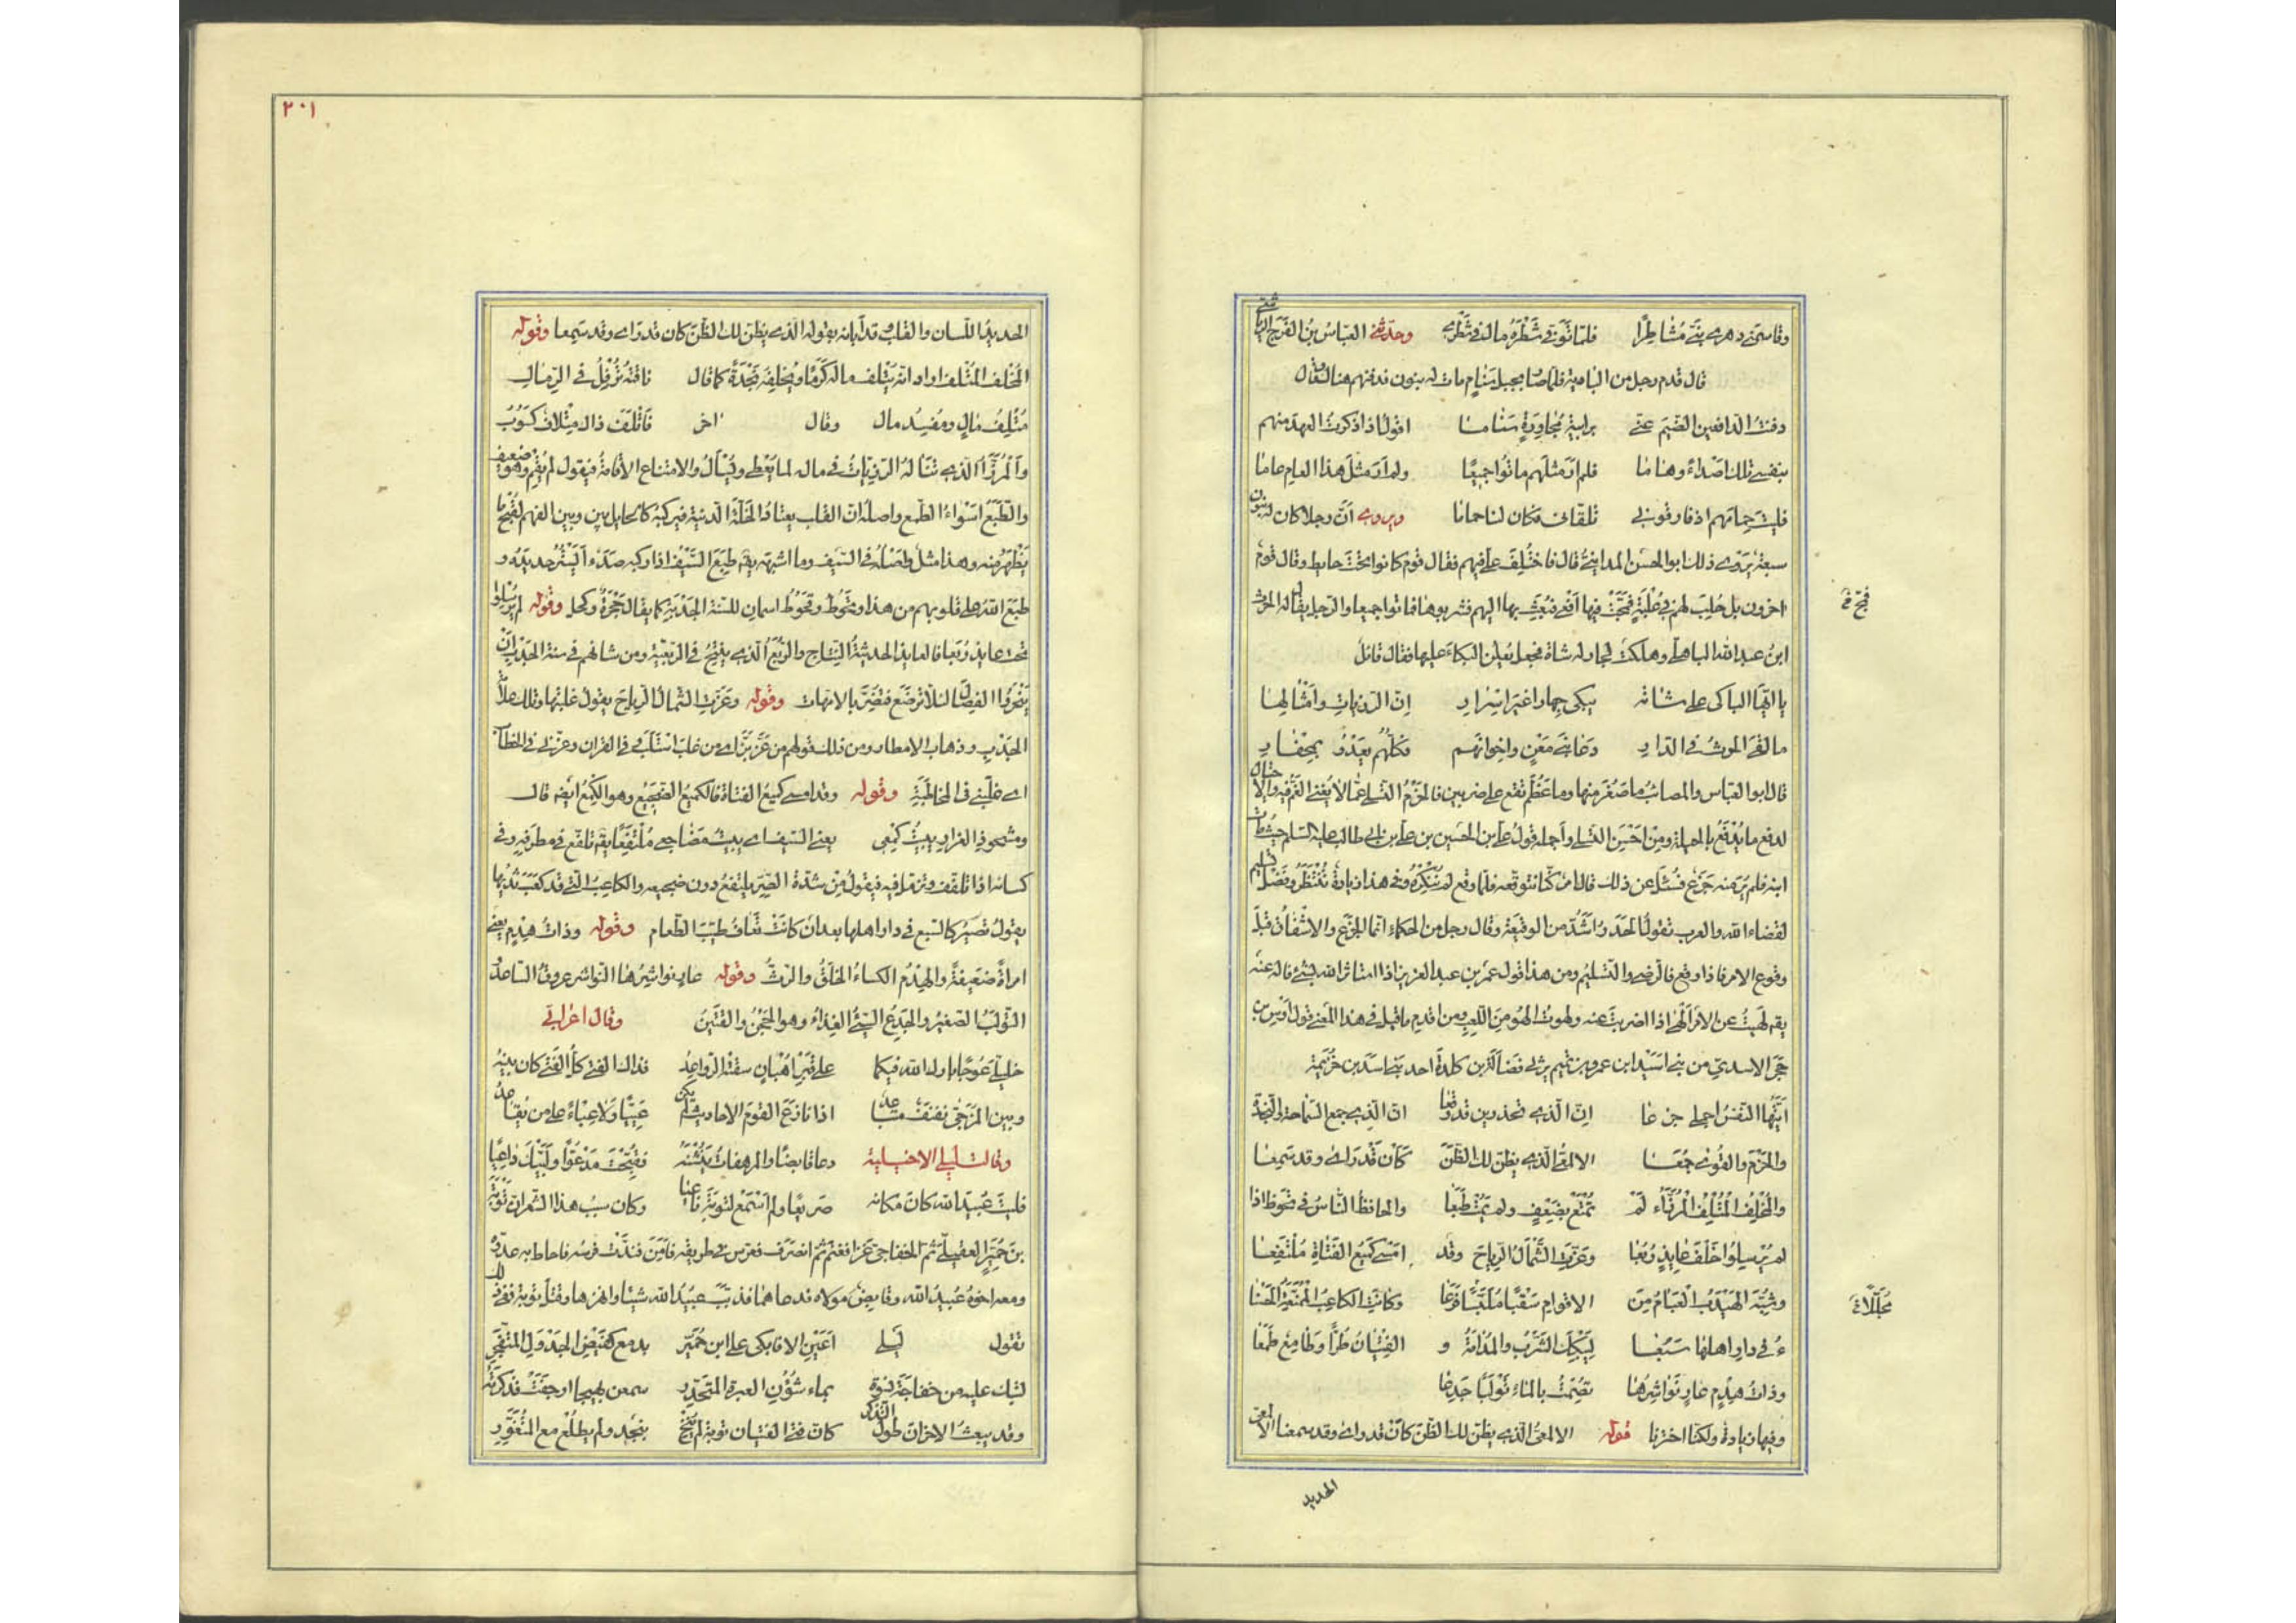 وقاسمني دهري بنيّ مُشاطِرًا فلمّا توفّى شَطْرَهُ مال في شَطْرِي وحدّثني العبّاسُ بنُ الفَرَج الرياشي
قال قدم رجل من البادية فلمّا صار بجبل سَنامٍ مات له بنون فدفنهم هنالك فقال
دفنتُ الدافعين الضَّيمَ عنّي برابيةٍ مُجاورةٍ سَناما اقولُ اذا ذكرتُ العهدَ منهم
بنفسي تلك اصداءً وهاما فلم ارَ مثلَهم ماتوا جميعًا ولم ارَ مثلَ هذا العامِ عاما
فليتَ حِمامَهم اذ فارقوني تلقّانا فكان لنا حِماما ويروى انّ رجلا كان له بنون
سبعةٌ يَرْوي ذلك ابو الحسن المداينيّ قال فاختُلِفَ علي فيهم فقال قوم كانوا تحتَ حايطٍ وقال قومٌ
اخرون بل حُلِبَ لهم في عُلْبَةٍ فَمَجَّتْ فيها اَفْعى فبُعِثَ بها اليهم فشربوها فماتوا جميعا والرّجل يقال له الحرث
ابنُ عبد الله الباهلي وهلكتْ لجارٍ له شاة فجعل يُعلِن البكاءَ عليها فقال قائل
يا ايّها الباكي على شاته يبكي جِهارا غيرَ اِسْرارِ اِنّ الرزيّات وامثالَها
ما لقي الحرثُ في الدّارِ دَعا بَني مَعْنٍ واِخوانَهم فكلُّهم يَعْدُو بمِحْفارِ
قال ابو العبّاس والمصائبُ ما صَغُرَ منها وما عَظُمَ تقع على ضربين فالحَزْمُ التسلّي عمّا لا يُغني الغَمُّ فيه والاحتيال
لدفع ما يُدْفَعُ بالحيلة ومِن اَحْسَنِ التسلّي واَجمله قولُ علي بن الحسين بن علي بن ابي طالب عليه السّلم حيثُ مات
ابنه فلم يُرَ منه جَزَعٌ فسُئلَ عن ذلك قال امرٌ كنّا نتوقّعه فلمّا وقع لم نُنْكِرْهُ وفي هذا زيادة تُنْتَظَرُ وفَضْلُ تسليم
لقضاءِ الله والعرب تقولُ الحَذَرُ اَشَدُّ من الوقيعة وقال رجل من الحكماء انّما الجزع والاشفاق قبلَ
وقوع الامر فاذا وقع فالرضى والتّسليم ومن هذا قول عمر بن عبد العزيز اذا استاثر الله بشئ فالهَ عنه
يقه لَهيتُ عن الامر اَلْهى اذا اضربتَ عنه ولهوتُ الهُو من اللّعِبِ ومن اقدم ما قيل في هذا المعنى قول اَوْس بن
حَجَر الاسديّ من بني اَسَيْد ابن عمرو بن تميم يرثي فَضالة بن كلدة احد بني اسد بن خُزيمة
اَيَّتُها النّفسُ اجملي جزعا اِنّ الذي تحذرين قد وقعا انّ الذي جمع السّماحة والنّجدة
والحَزمَ والقُوى جُمَعا الالمعيَّ الذي يظنّ لك الظَنَّ كاَنْ قد رأى وقد سمعا
والمُخْلِفُ المُتْلِفُ المُرَزَّاءُ لَمْ يُمْتَعْ بضَعْفٍ ولم يَمُتْ طَبَعا والحافظُ النّاسَ في تحوطَ اذا
لم يُرسِلوا خَلفَ عايذٍ رُبَعا وعَزّتِ الشَّمألُ الرياحَ وقد اَمْسى كميعُ الفتاةِ مُلْتفِعا
وشُبِّهَ الهَيْدَبُ العَبامُ مِنَ الاقوامِ سَقْبًا مُلَبَّسًا فَرَعا وكانتِ الكاعبُ المُمَنّعةُ الحَسْنا
ءُ في دارِ اهلها سَبُعا لِيَبْكِكَ الشَّرْبُ والمُدامةُ و الفِتْيانُ طُرًّا وطامِعٌ طَمِعا
وذاتُ هِدْمٍ عارٍ نَواشِرُها تُصْمِتُ بالماء تَوْلَبًا جَدِعا
وفيها زيادة ولكنّا اخترنا قوله الالمعيّ الذي يظنّ لك الظنّ كاَن قد راى وقد سمعا الالمعيّ
الحديد
فمَجّ في
مُجَلَّلًا
٢٠١
الحديدُ اللّسان والقلب قد اَبانه بقوله الذي يظنّ لك الظّنّ كان قد رأى وقد سمعا وقوله
المُخْلف المُتْلف اراد انّه يُتلف ماله كَرَمًا ويُخلِفه نَجْدَةً كما قال ناقتُه تُرْقِلُ في الرّمال
مُتْلِفُ مالٍ ومُفيدُ مال وقال اخر فَاَتْلَفَ ذاك مِتْلافٌ كَسُوبُ
والمُرَزَّأُ الّذي تَنالُهُ الرّزيّاتُ في ماله لما يُعْطى ويُسْألُ والامتناع الاقامةُ فيقول لم يُقِمْ وهو ضعيف
والطَّبَعُ اَسْواءُ الطّمع واصلُه انّ القلب يعتادُ الخَلّةَ الدنيّة فيركبهُ كالحايل بين وبين الفهم لقُبْح ما
يَظْهَرُ منه وهذا مثل واَصْلُه في السّيف وما اشبهه يقه طَبِعَ السَّيْفُ اذا ركبه صَدَاء يَسْتُرُ حديدَه و
طَبَعَ اللهُ على قلوبهم من هذا وتحُوطُ وقحُوطُ اسمانِ للسّنة الجَدْبَةِ كما يقال حَجْرَةُ وكحل وقوله لم يُرسِلوا
تحت عايذٍ رُبَعا فالعايذ الحديثةُ النِّتاج والرُّبَعُ الذي يُنْتَجُ في الربعيّة ومن شانهم في سنة الجَدْبِ ان
يَنْحَروا الفِصالَ لئلّا تَرضَع فتُضِرَّ بالامّهات وقوله وعَزّتِ الشمألُ الرياحَ يقول غلبتها وتلك علامة
الجَدْبِ وذهابِ الامطار ومن ذلك قولهم مَن عَزَّ بَزَّ اي من غلبَ اسْتَلَبَ وفي القران وعزّني في الخطاب
اي غلَبني في المُخاطَبَةِ وقوله وقد امسى كميعُ الفتاة فالكميعُ الضجيع وهو الكِمْعُ ايضا قال
ومشحوذ الغرارِ يبيتُ كِمْعي يعني السّيف اي يبيتُ مُضاجعي مُلْتفِعًا يقه تلفّع في مِطرفِه وفي
كسائه اذا تلفّف وتزمّل فيه فيقولُ مِن شدّة الصِّرّ يلتفعُ دون ضجيعه والكاعبُ الّتي قد كعَبَ ثديُها
يقولُ تصيرُ كالسّبع في دار اهلها بعد ان كانتْ تعافُ طيّبَ الطّعام وقوله وذاتُ هِدْمٍ يعني
امراةً ضعيفةً والهِدْمُ الكساءُ الخلَقُ والرّثُّ وقوله عارٍ نواشِرُها النّواشر عروقُ السّاعد و
التّولَبُ الصّغيرُ والجَدِعُ السّيّئُ الغِذاءُ وهو الجَحِنُ والقَتينُ وقال اعرابي
خليليّ عُوجا بارك الله فيكما على قبرِ اُهْبانٍ سقَتْهُ الرّواعِدُ فذاك الفتى كلُّ الفتى كان بينَه
وبين المُزجّى نفنفٌ متباعدُ اذا نازع القومُ الاحاديثَ لم يكن عَيِيًّا ولا عِبئاً على من يُقاعدُ
وقالت ليلى الاخيلية دعا قابضًا والمرهفاتُ يَنُشْنَهُ فقُبِّحْتَ مَدْعوًّا ولَبَّيْكَ داعيًا
فليتَ عُبيدَ الله كانَ مكانَه صَريعًا ولم اَسْمَعْ لتوبةَ ناعيا وكان سببُ هذا الشّعر انّ تَوْبَةَ
بنَ حُمَيِّر العقيليّ ثم الخفاجيّ غزا فغنم ثمّ انصرف فعرّس في طريقه فاَمِنَ فندّت فرسُه فاحاط به عدوّه
ومعه اخوهُ عُبيدُ الله وقابضٌ مولاه فدعاهما فذبّبَ عبيدُ الله شيئا وانهزما وقُتِلَ توبة ففي ذلك
تقول ليلى اَعَيْنِ الا فابكي على ابن حُميِّر بدمعٍ كفيضِ الجَدْوَلِ المتفجّرِ
لتبك عليه من خفاجةَ نسوة بماءِ شُؤُونِ العبرةِ المتحدّرِ سمعن بهيجا ارهقتْ فذكرنَه
وقد يبعثُ الاحزانَ طولُ التذكّر كانّ فتى الفتيان توبةَ لم يُنِخْ بنجدٍ ولم يطلُعْ مع المُتَغوِّرِ